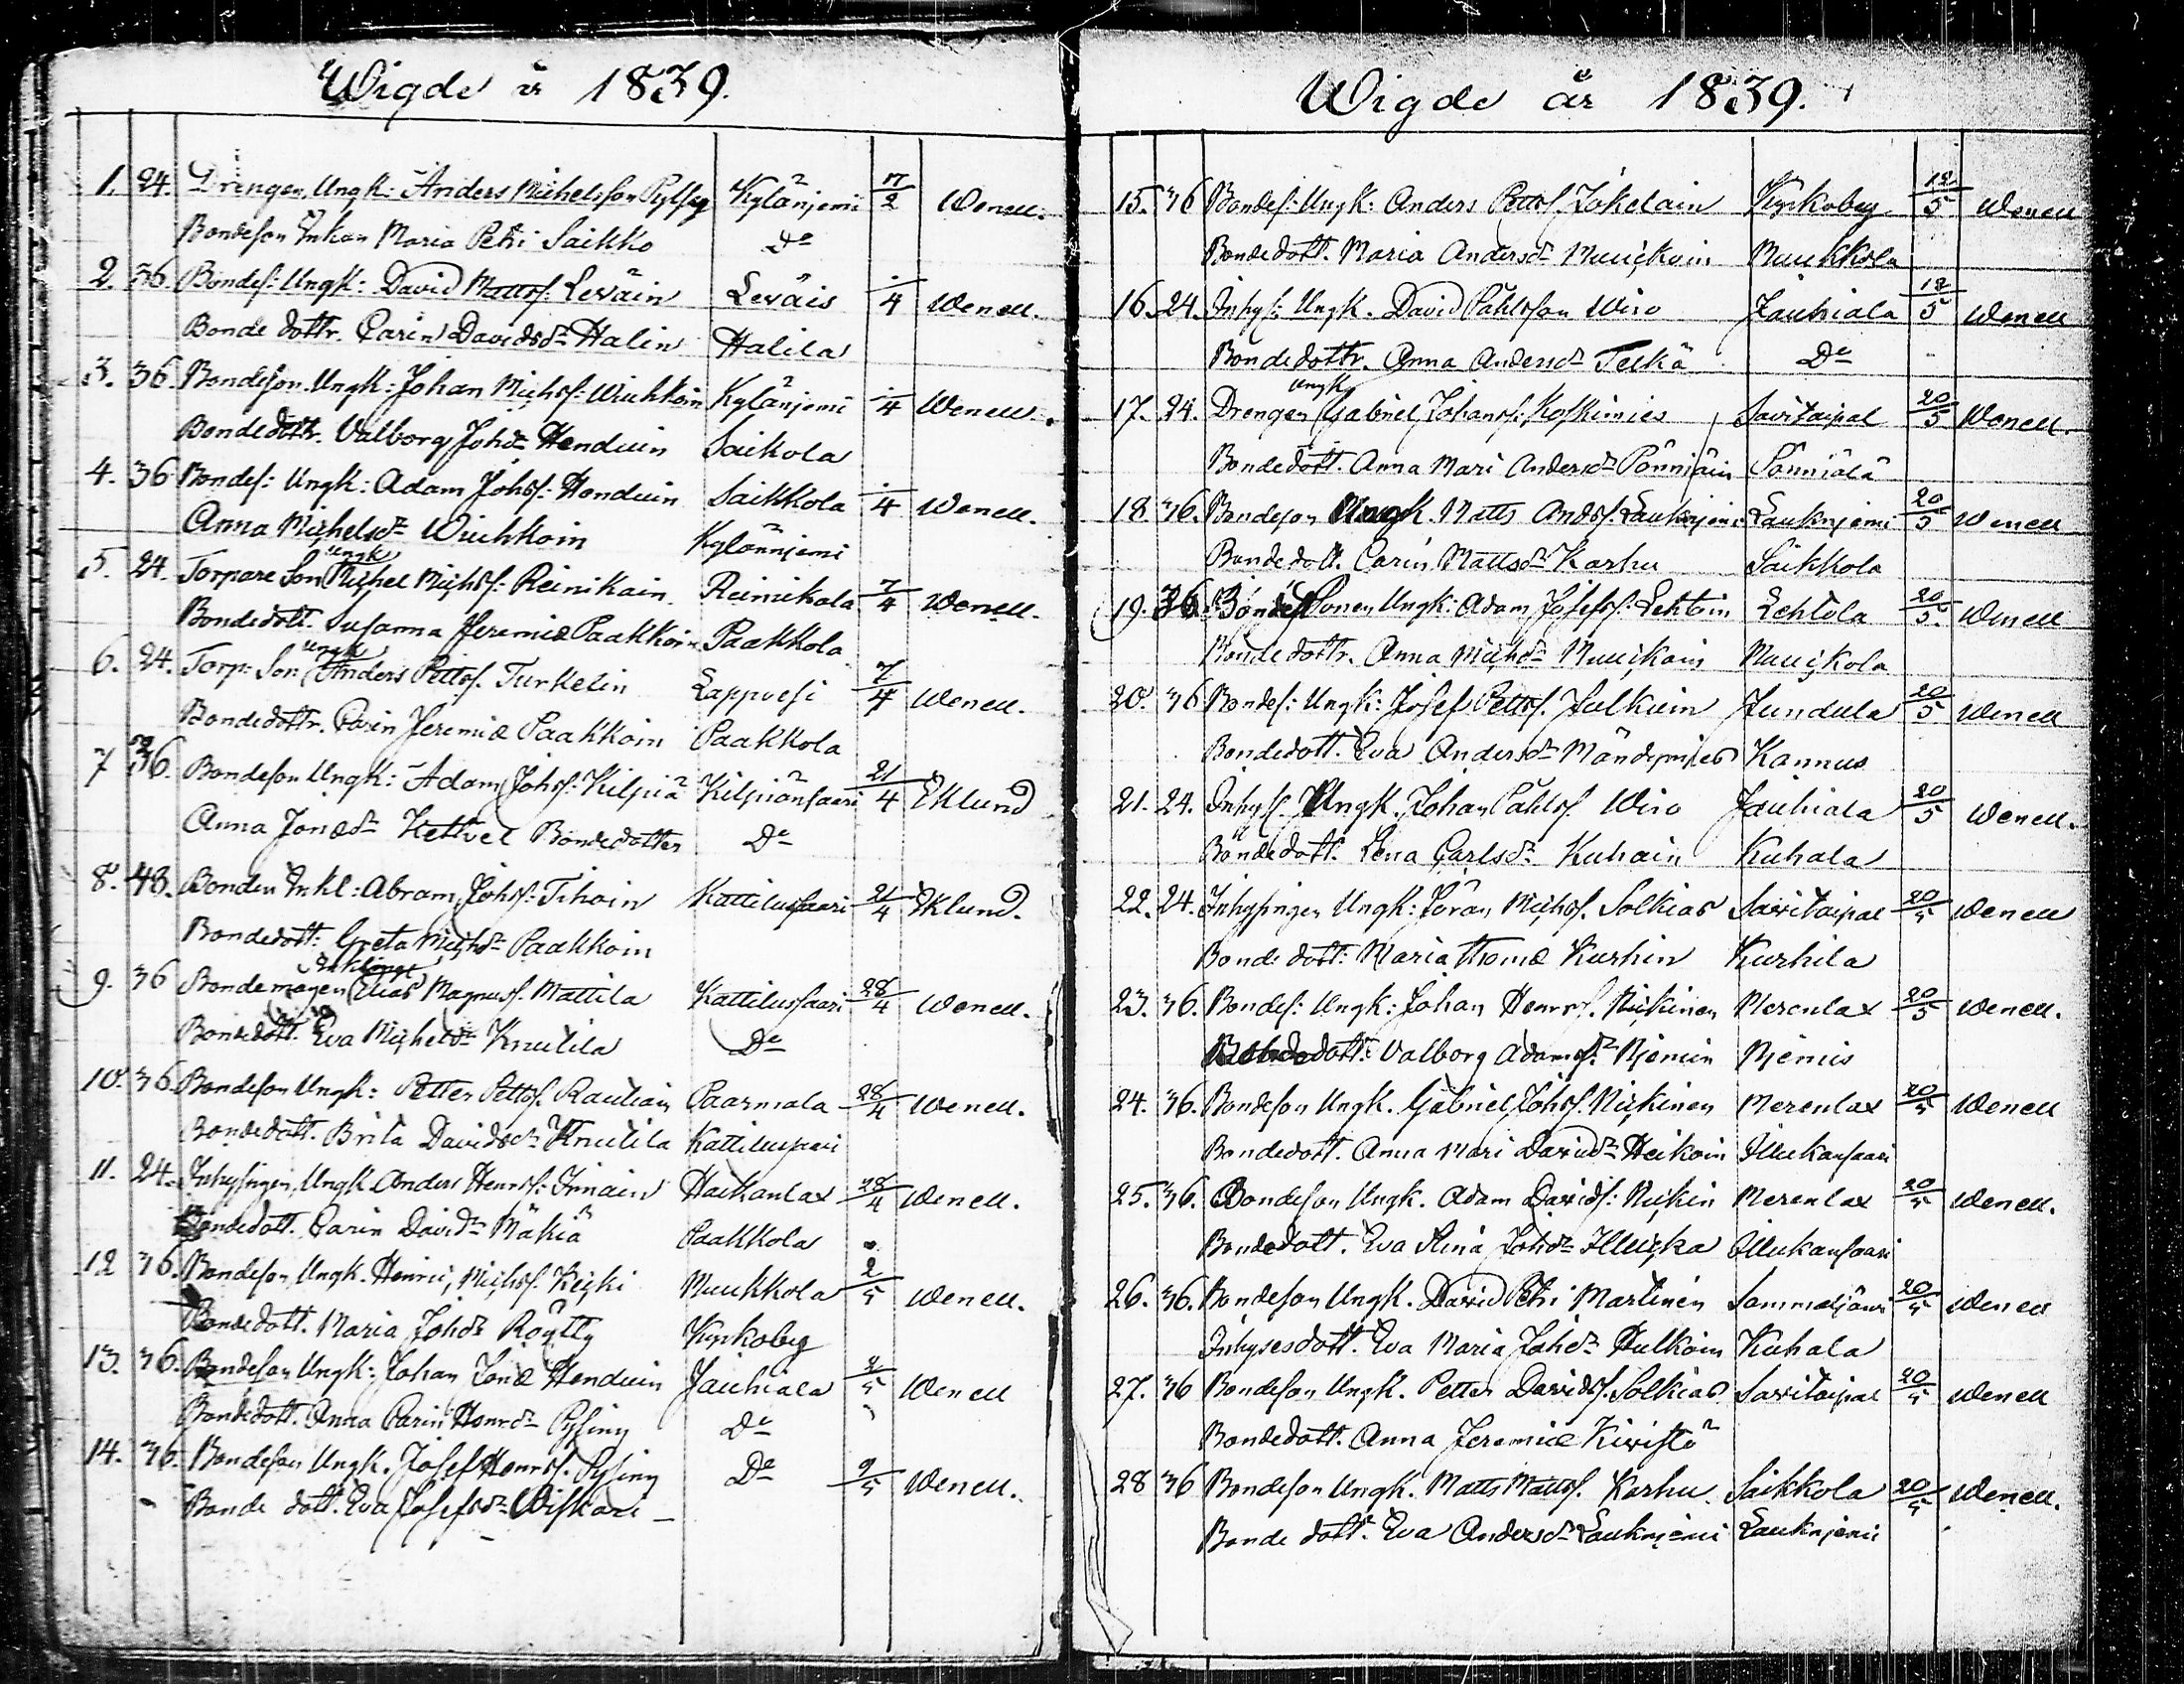 Wigde år 1839.
1. 24. Drengen, Ungk: Anders Michelsson Kylänjemi 7/2 Wenell.
Bondeson Enkan Maria Petri Saikko Do
2. 36. Bondes: Ungk: David Mattss: Leväin Leväis /4 Wenell.
Bonde dottr. Carin Davidsdr Halin Halila
3. 36. Bondeson Ungk: Johan Michss: Wiuhkoin Kylänjemi /4 Wenell.
Bondedottr. Valborg Johdr Henduin Saikola
4. 36 Bondes: Ungk: Adam Johss: Henduin Saikkola /4 Wenell.
Anna Michelsdr Wiuhkoin Kylännjemi
5. 24. Torpare Son Ungk Michel Michss: Reinikain Reinikala 7/4 Wenell.
Bondedott. Susanna Jeremiæ Paakkoin Paakkola
6. 24. Torp: Son Ungk Anders Pettss. Turkelin Lappvesi 7/4 Wenell.
Bondedottr. Carin Jeremiæ Paakkoin Paakkola
7 36. Bondeson Ungk: Adam Johss: Kilpiä Kilpiänsaari 21/4 Eklund
Anna Jonædr Kettvel Bondedotter Do
8. 48. Bonden Enkl: Abram Johss: Tihoin Kattilussaari 21/4 Eklund.
Bondedott: Greta Michdr Paakkoin
9. 36 Bondemågen Enklingc Elias Magnuss. Mattila Kattilussaari 28/4 Wenell.
Bondedott. Eva Michelsdr Knutila Do
10. 36. Bondeson Ungk: Petter Pettss. Rautiain Paarmala 28/4 Wenell.
Bondedott. Brita Davidsdr Knutila Kattilussaari
11. 24. Inhysingen, Ungk. Anders Henrss: Innain Haikanlax 28/4 Wenell.
Bondedott. Carin Daviddr Mäkiä Paakkola
12 36. Bondeson, Ungk. Henric Michss. Keski Muukkola 2/5 Wenell.
Bondedott. Maria Johdr Röytty Kyrkoby
13. 36. Bondeson Ungk: Johan Jonæ Henduin Jauhiala 2/5 Wenell
Bondedott. Anna Carin Henrdr Pysiny Do
14. 36. Bondeson Ungk. Josef Henrss. Pysiny Do 9/5 Wenell.
Bonde dott. Eva Josefsdr Wiskari
Wigde år 1839.
15. 36 Bondes: Ungk: Anders Pettss Jokelain Kyrkoby 12/5 Wenell
Bondedott. Maria Andersdr Muuckoin Muukkola
16. 24. Inhys: Ungk. David Påhlsson Wiro Jauhiala 12/5 Wenell
Bondedottr. Anna Andersdr Telkä Do
17. 24. Drengen Ungk Gabriel Johanss: Koskimies Savitaipal 20/5 Wenell.
Bondedott. Anna Mari Andersdr Pönniäin Pönniälä
18. 36. Bondeson Ungk. Matts Andss. Lauknjemi Lauknjemi 20/5 Wenell
Bondedott. Carin Mattsdr Karhu Saikkola
19. 36. Bonde Sonen Ungk: Adam Josefss: Lehtoin Lehtola 20/5. Wenell
Bondedottr. Anna Michdr Muuckoin Muuckola
20. 36 Bondes: Ungk: Josef Pettss. Julkuin Jundula 20/5 Wenell
Bondedott. Eva Andersdr Mändymies Kannus
21. 24. Inhys. Ungk. Johan Påhlss. Wiro Jauhiala 20/5 Wenell.
Bondedott. Lena Carlsdr Kuhain Kuhala
22. 24. Inhysingen Ungk: Jöran Michss. Solkias Savitaipal 20/5 Wenell
Bondedott: Maria Thomæ Kurhin Kurhila
23. 36. Bondes: Ungk: Johan Henrss. Nickinen Merenlax 20/5 Wenell.
Bondedott: Valborg Adamsdr Njemin Njemis
24. 36. Bondeson Ungk. Gabriel Johss. Nickinen Merenlax 20/5 Wenell
Bondedott. Anna Mari Daviddr Heikoin Illukansaari
25. 36. Bondeson Ungk. Adam Davids: Nickin Merenlax 20/5 Wenell.
Bondedott. Eva Stina Johdr Illucka Illukansaari
26. 36. Bondeson Ungk. David Petri Martinen Sammaljärvi 20/5 Wenell
Inhysesdott. Eva Maria Johdr Hulkoin Kuhala
27. 36 Bondeson Ungk. Petter Davidss. Solkias Savitaipal 20/5 Wenell
Bondedott. Anna Jeremiæ Kivistö
28 36 Bondeson Ungk. Matts Mattss. Karhu Saikkola 20/5 Wenell.
Bonde dott. Eva Andersdr Lauknjemi Lauknjemi